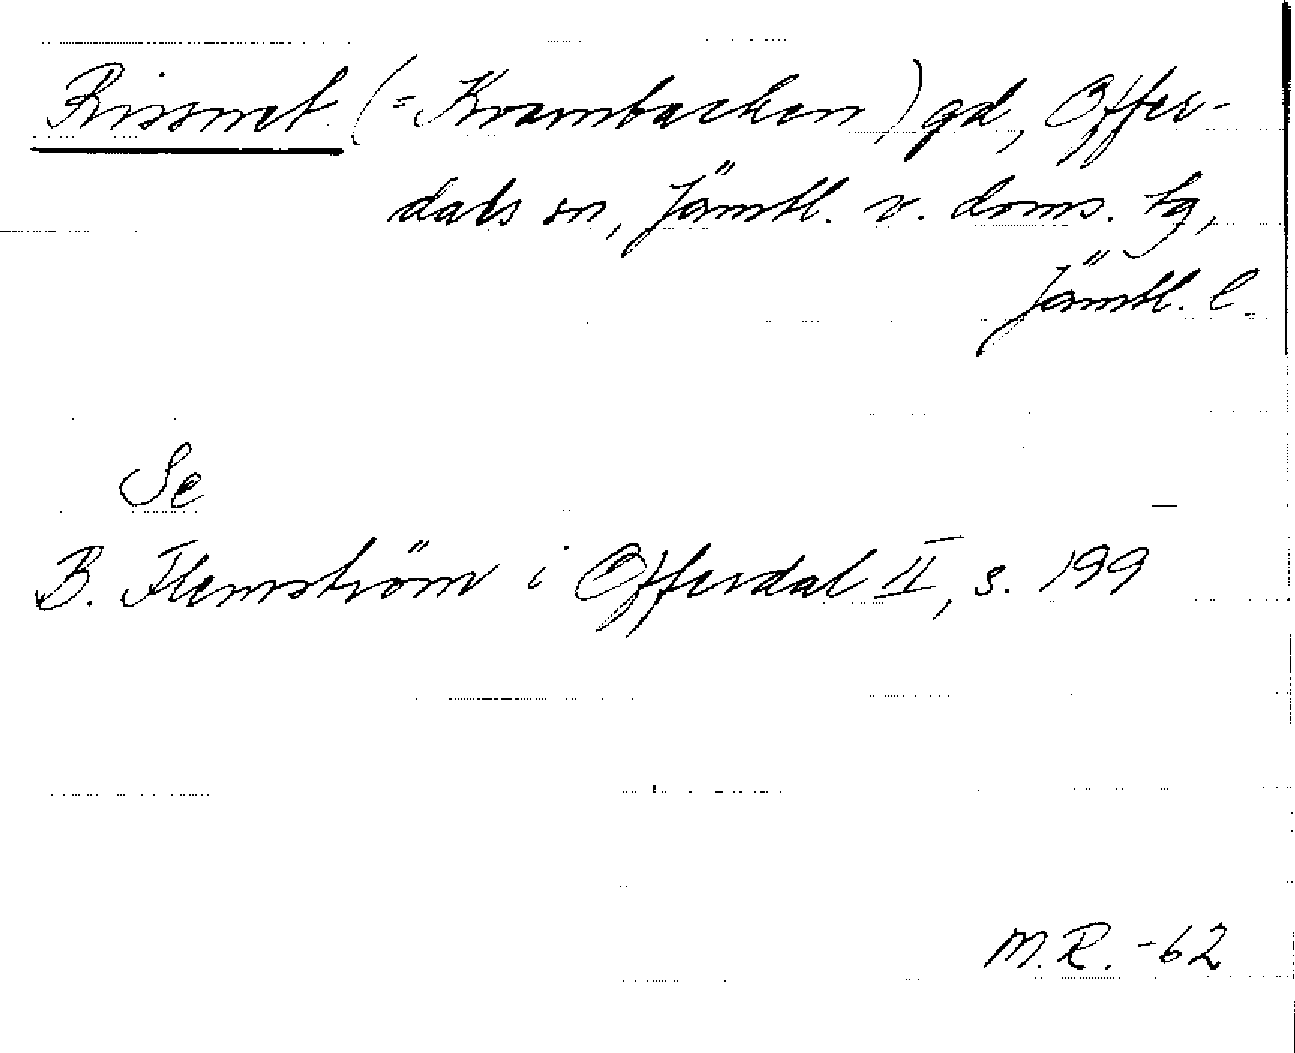 Rissmet (= Krambacken) gd, Offer-
dals sn, Jämtl. v. doms. tg,
Jämtl. l.
Se
B. Flemström i Offerdal II, s. 199
M.R. -62